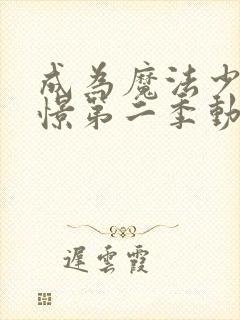 成為魔法少
憬第二季動
遲雲霞